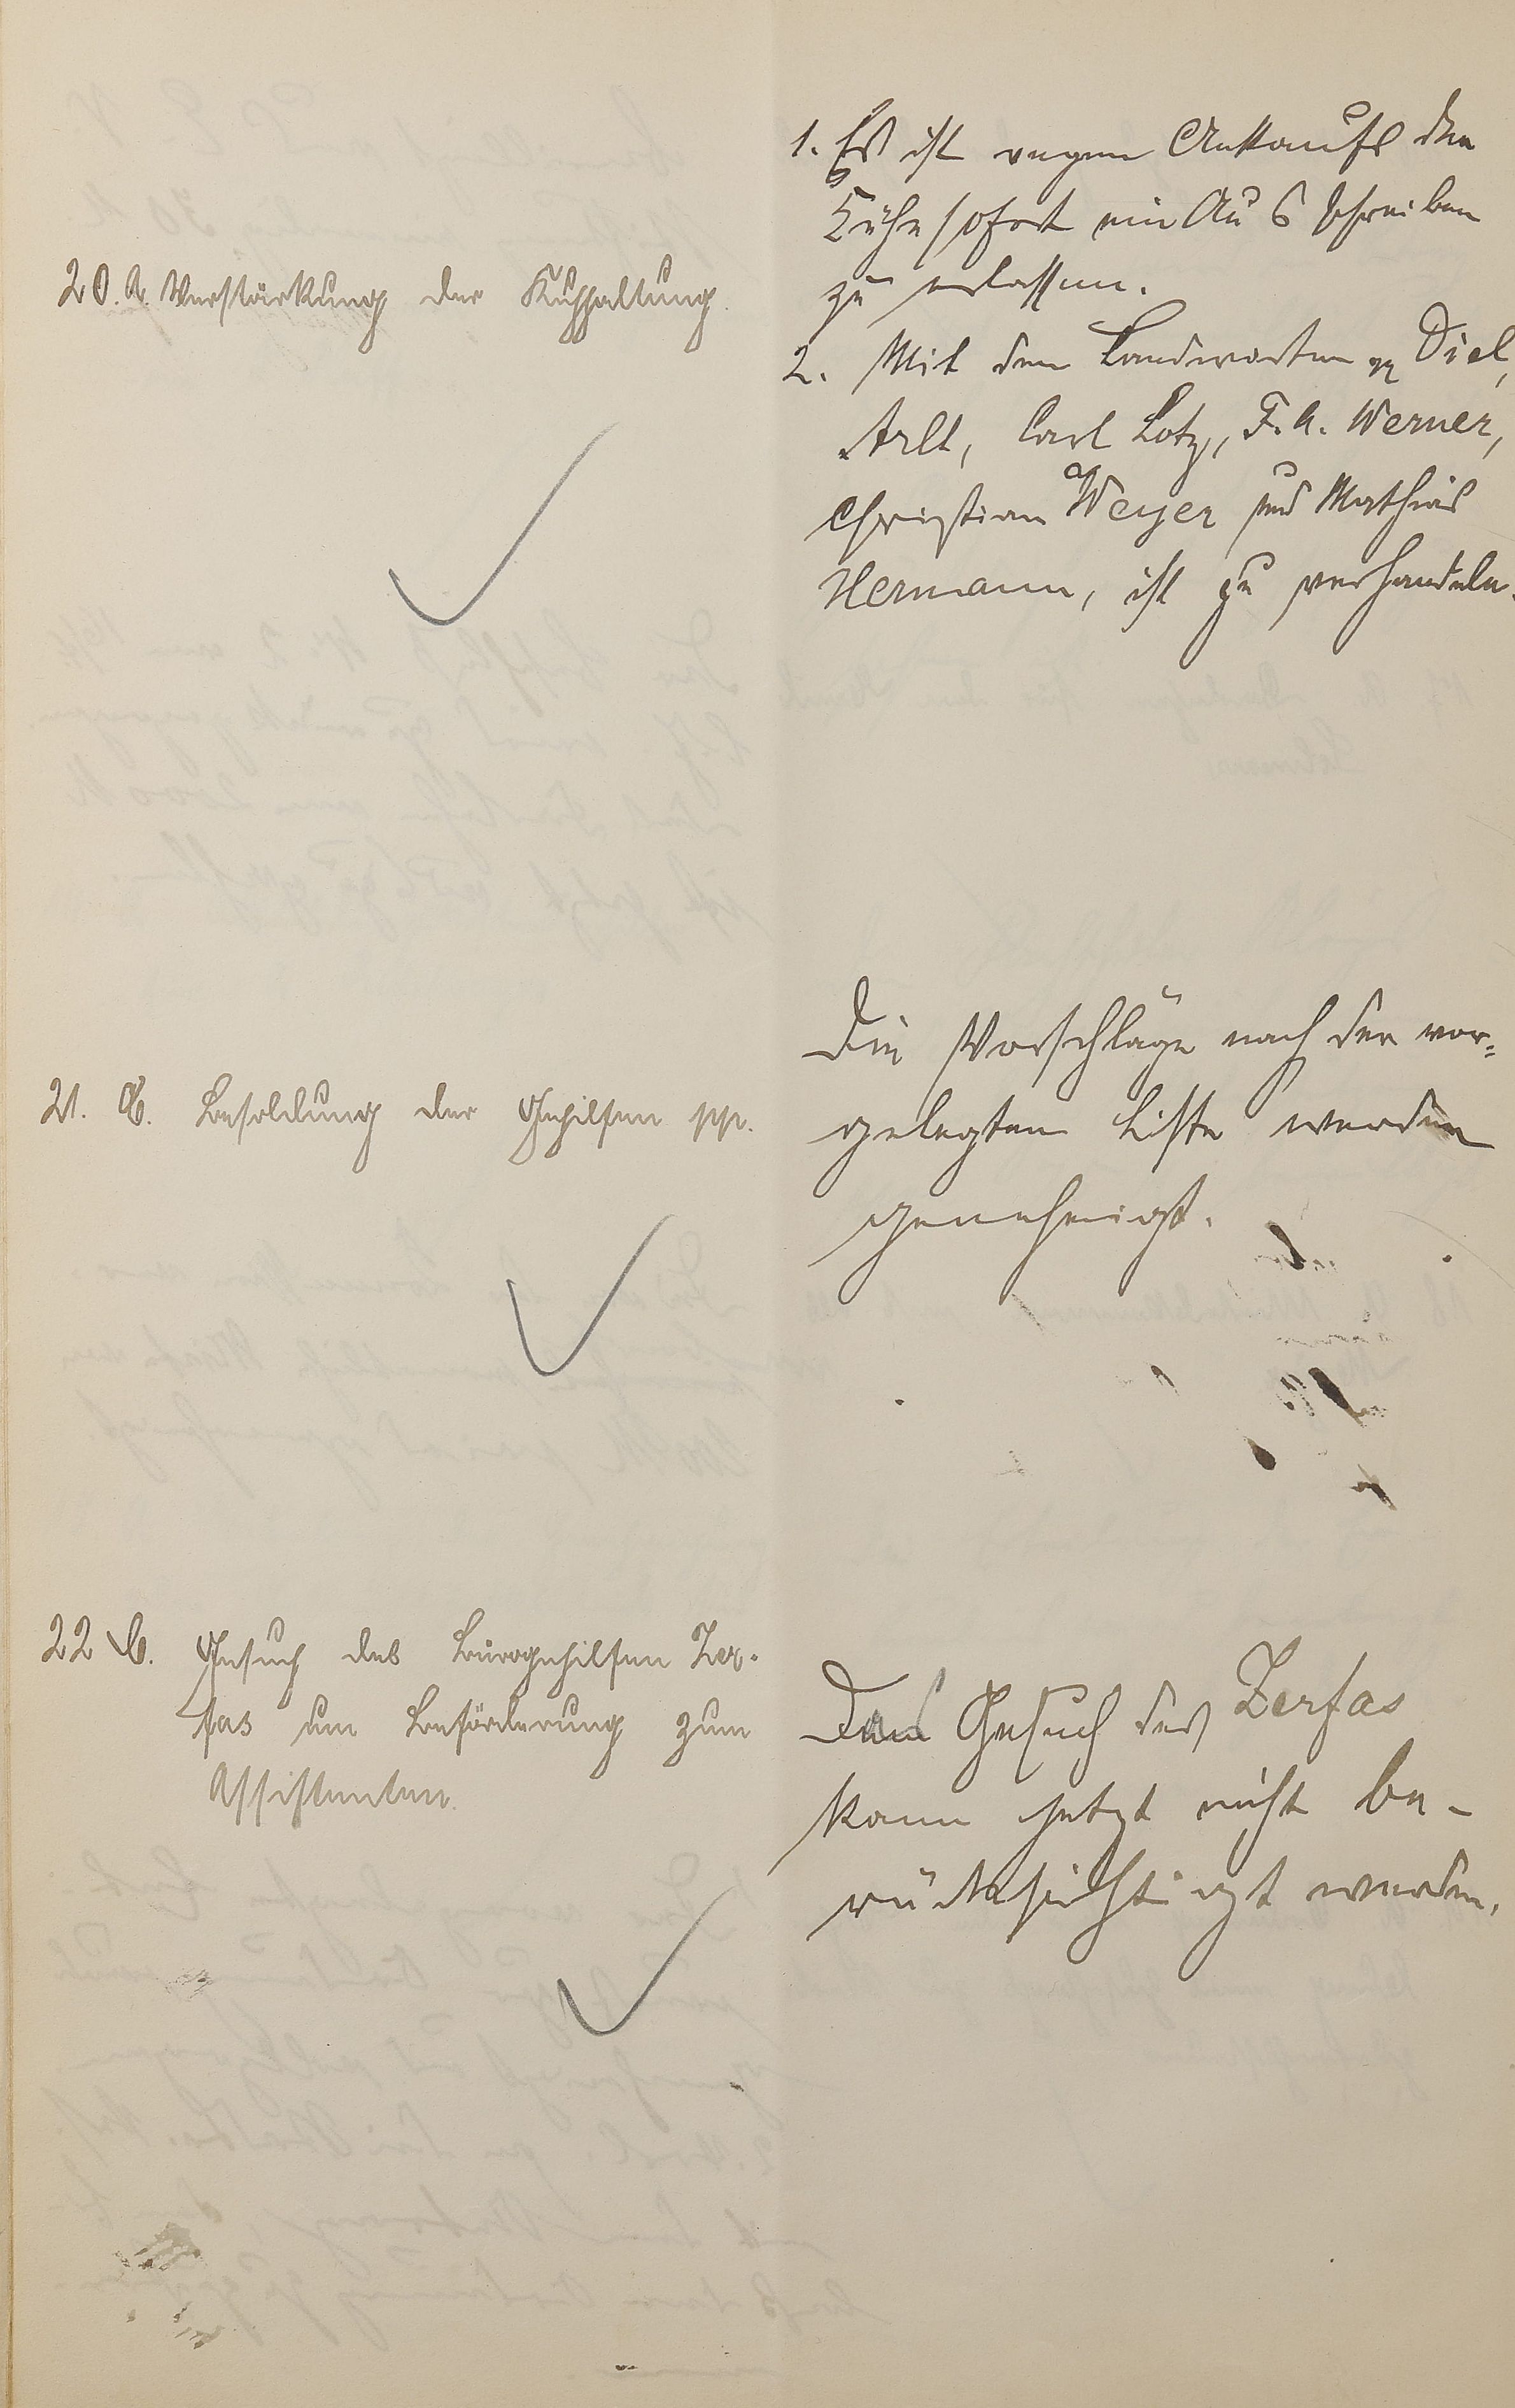 20. A. Verstärkung der Kuhhaltung.
1. Es ist wegen Ankaufs der
Kühe sofort ein Ausschreiben
zu erlassen.
2. Mit den Landwirten Diel,
Arlt, Carl Lotz, F. A. Werner,
Christian Weyer und Mathias
Hermann, ist zu verhandeln.
21. C. Besoldung der Gehilfen pp.
Die Vorschläge nach der vor-
gelegten Liste werden
genehmigt.
22 C. Gesuch des Bürogehilfen Zer-
fas um Beförderung zum
Assistenten.
Das Gesuch des Zerfas
kann jetzt nicht be-
rücksichtigt werden.